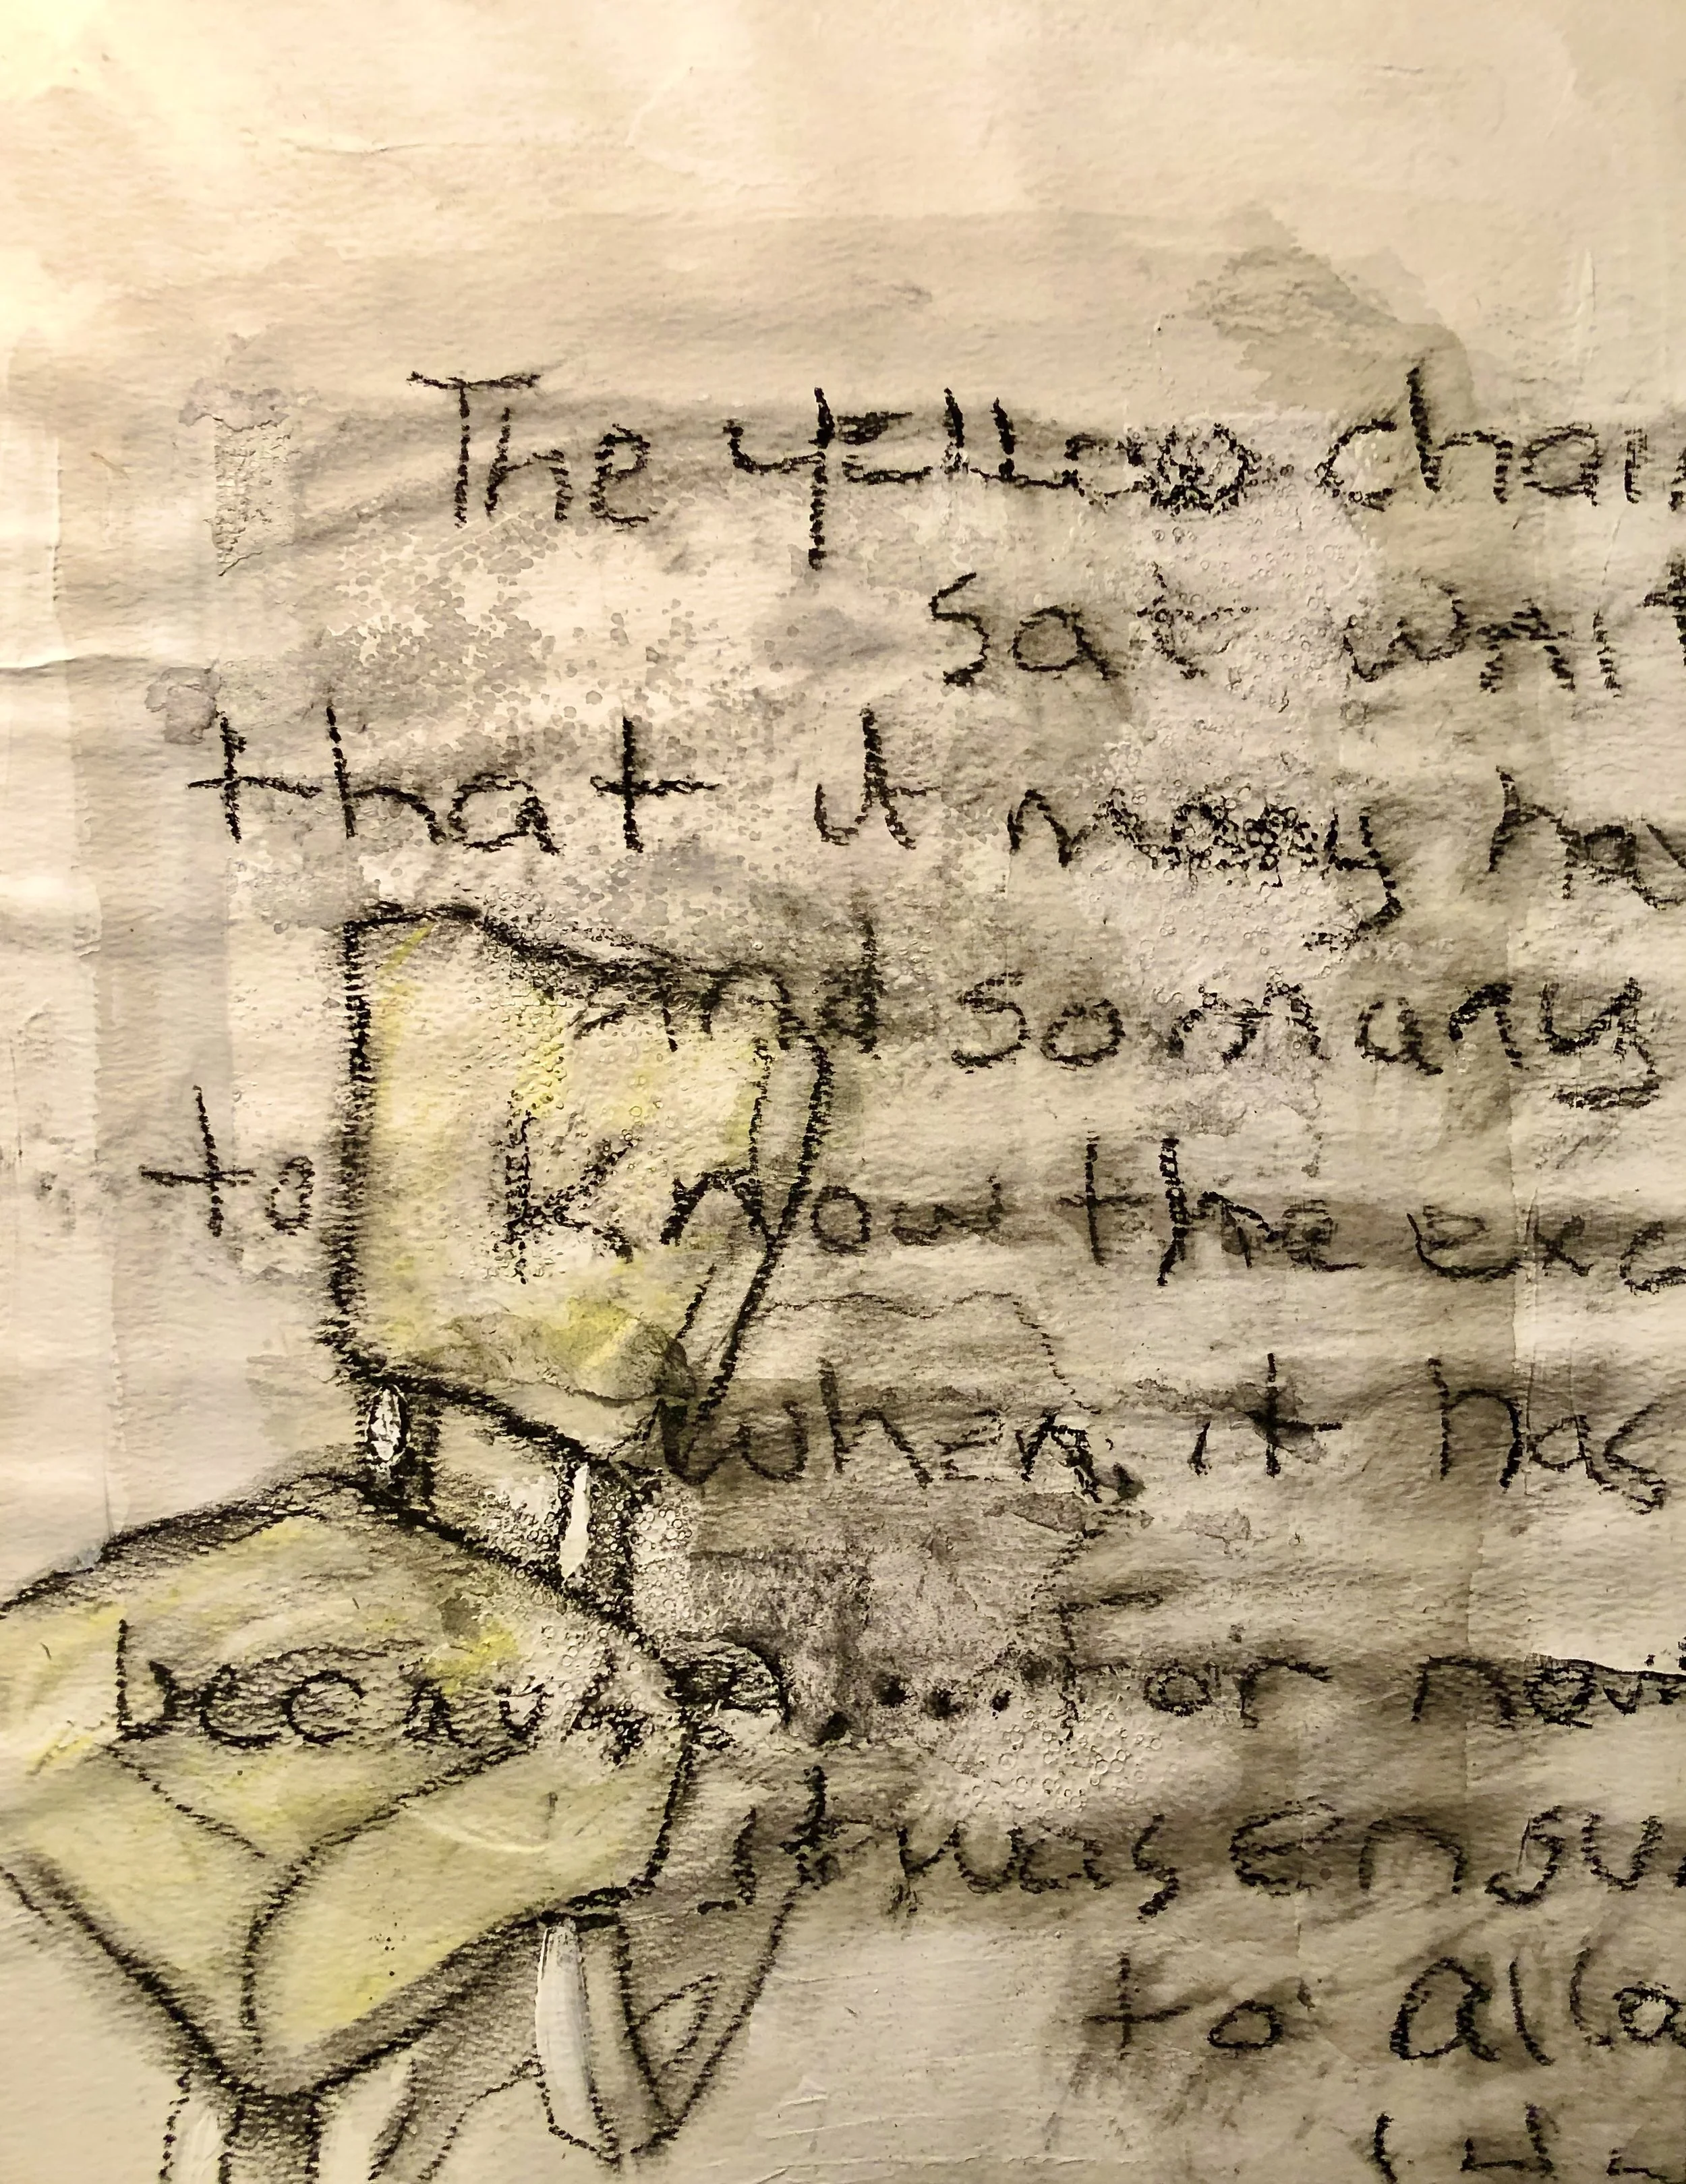 The yellow chair
sat
that it may hav
and so many
to know the exa
when, it has
because.... for now
it was
to